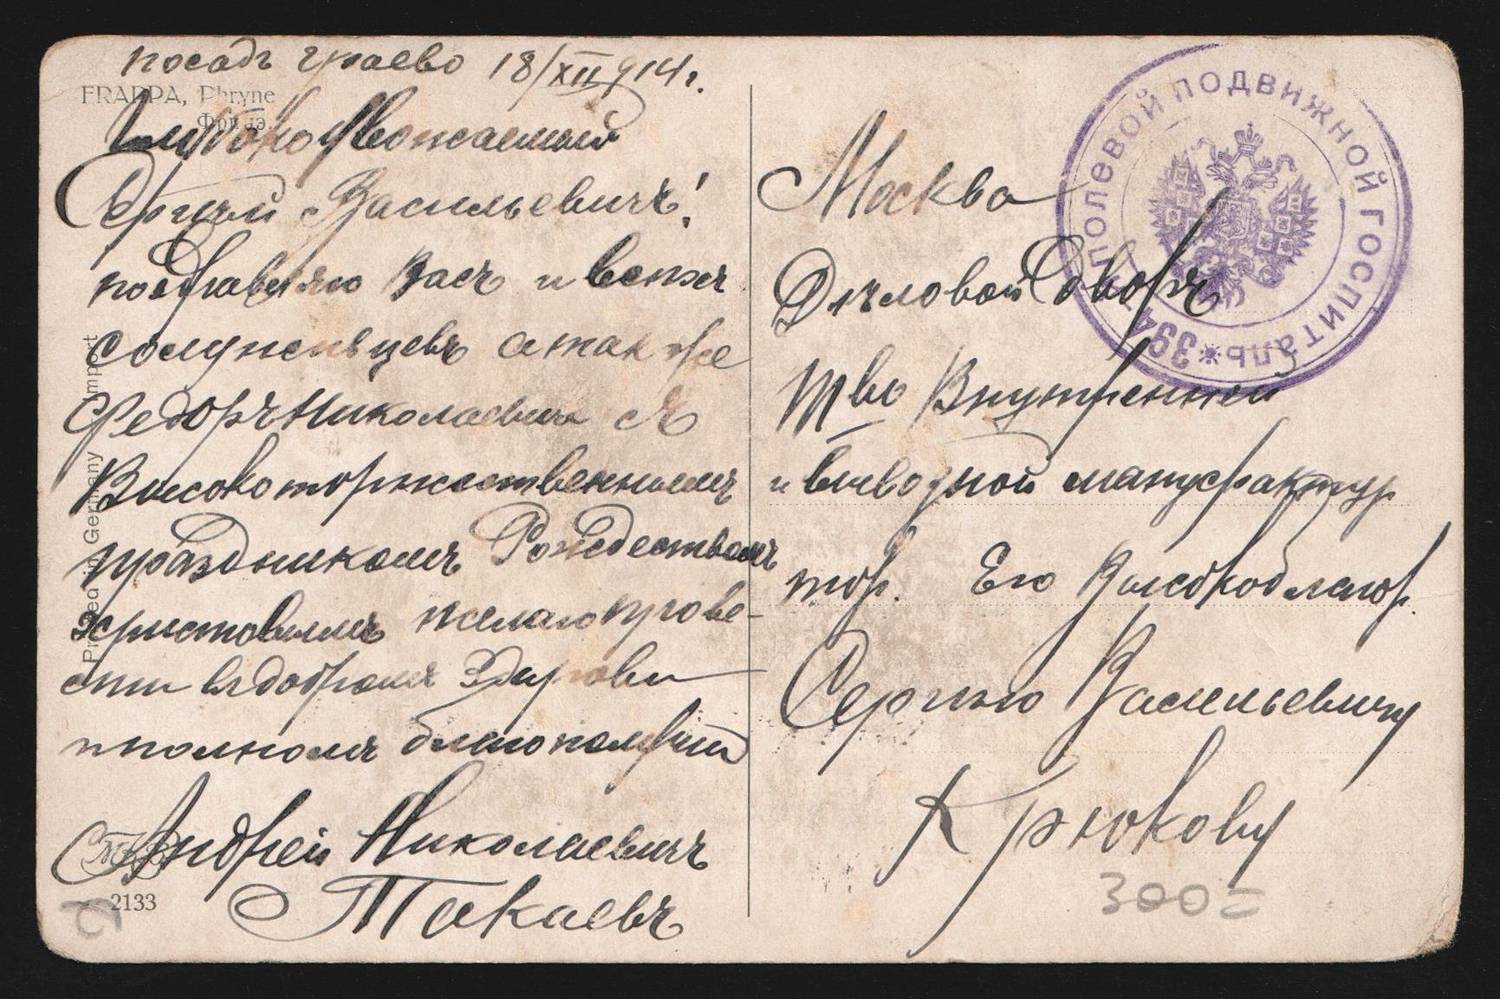 посадъ Граево 18/XII 914 г.
FRAPPA, Phryne
Фрина
Глубокоуважаемый
Сергѣй Васильевичъ!
поздравляю Васъ и всѣхъ
сослуживцевъ а так же
Федоръ Николаевича съ
Высокоторжественнымъ
праздникомъ Рождествомъ
христовымъ желаю прове-
сти въ добромъ здоровьи
и полномъ благополучіи
Андрей Николаевичъ
Такаевъ
2133
Printed in Germany Import
ПОЛЕВОЙ ПОДВИЖНОЙ ГОСПИТАЛЬ * 394
Москва
Дѣловой Дворъ
Т-во Внутренней
и вывозной мануфактур
тор. Его Высокоблагор.
Сергѣю Васильевичу
Крюкову
300=